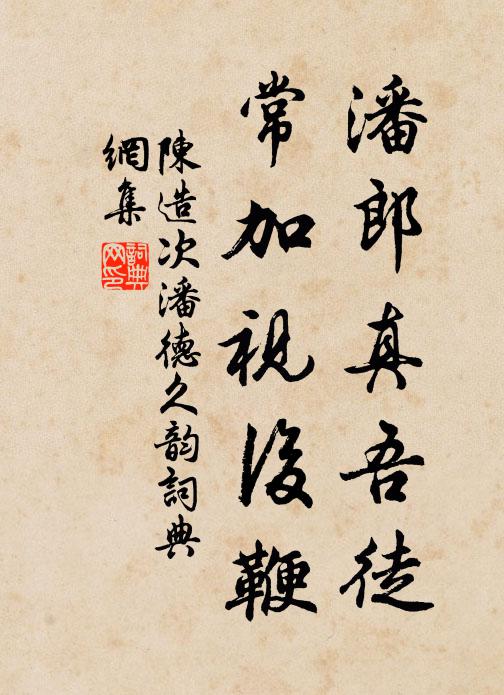 潘郎真吾徒
常加視後鞭
陳造次潘德久韵詞典
網集
詞典網印